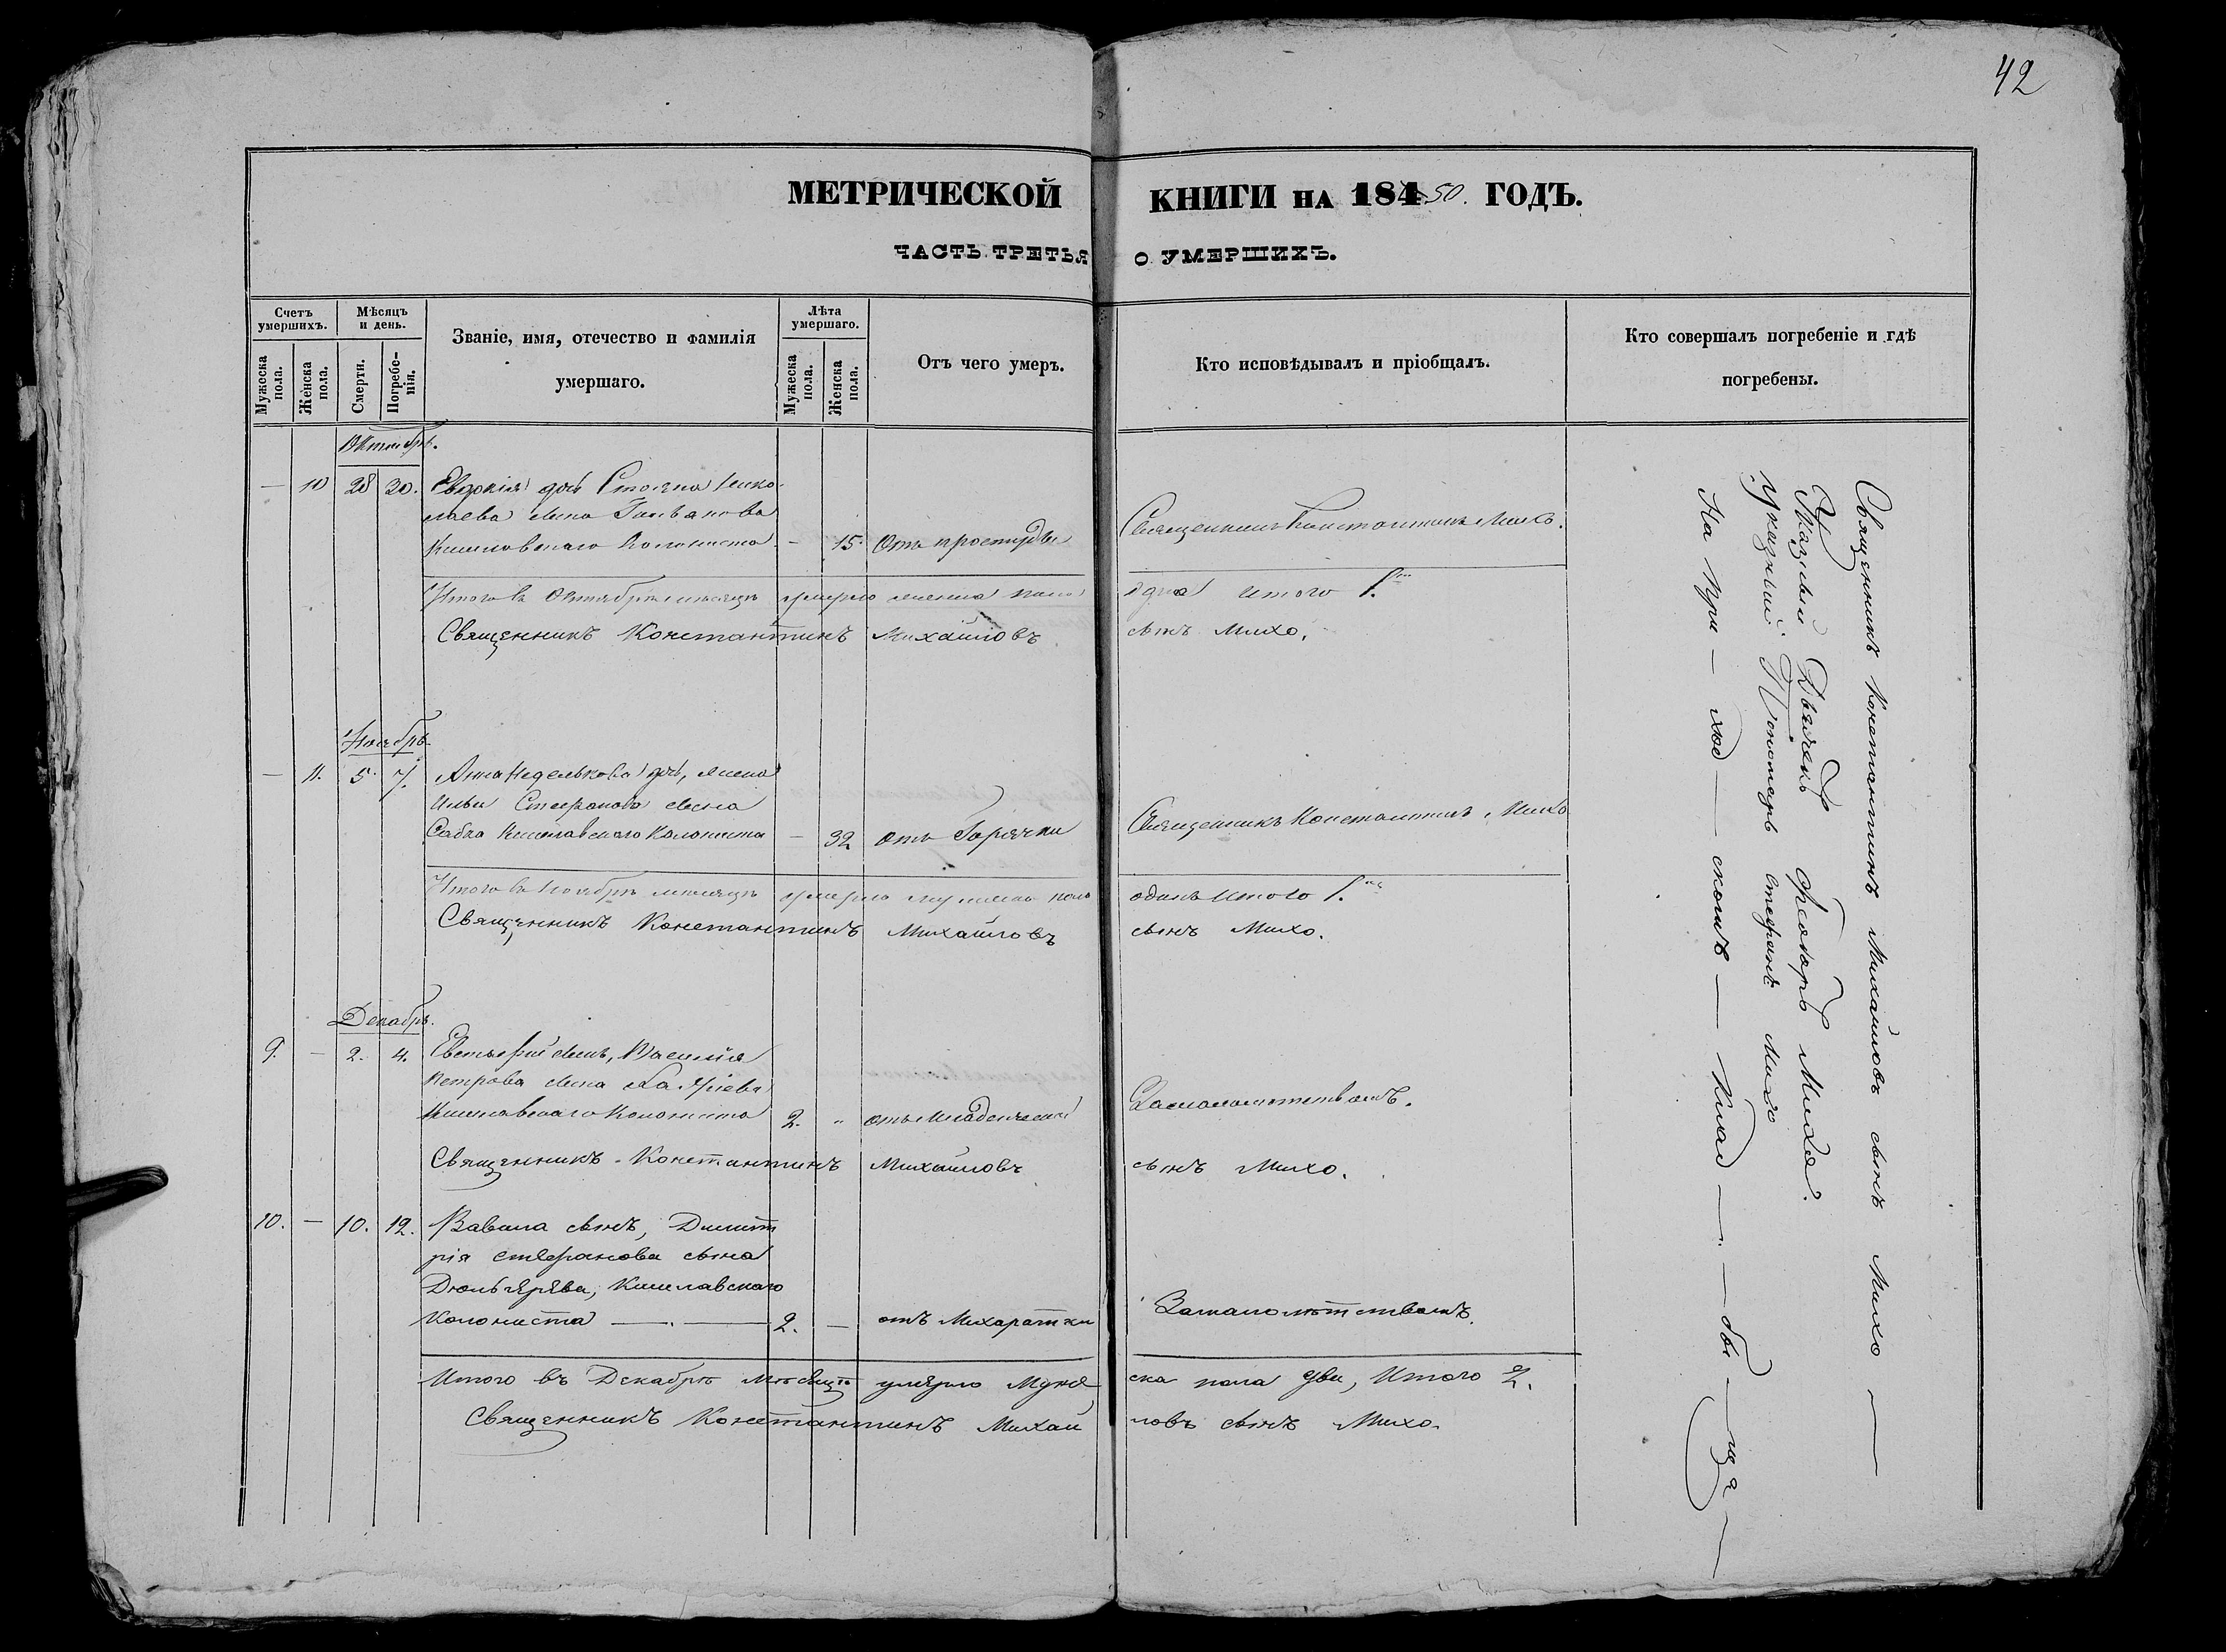 42
МЕТРИЧЕСКОЙ КНИГИ НА 184 50. ГОДЪ.
ЧАСТЬ ТРЕТЬЯ О УМЕРШИХЪ.
Счетъ умершихъ.
Мужеска пола.
Женска пола.
Мѣсяцъ и день.
Смерти.
Погребенія.
Званіе, имя, отечество и фамилія
умершаго.
Лѣта умершаго.
Мужеска пола.
Женска пола.
Отъ чего умеръ.
Кто исповѣдывалъ и пріобщалъ.
Кто совершалъ погребеніе и гдѣ
погребены.
Октябрь.
— 10 28 30. Евдокія дочь Стояна Нико-
лаева сына
колониста — 15. Отъ простуды Священникъ Константинъ Михо.
Итого въ Октябрѣ мѣсяцѣ умерло женска пола одна итого 1.
Священникъ Константинъ Михайловъ сынъ Михо.
Ноябрь
— 11. 5. 7. Анна Неделькова дочь, жена
Ильи Стефанова сына
Сабка колониста — 32 отъ Горячки Священникъ Константинъ Михо
Итого въ Ноябрѣ мѣсяцѣ умерло пола одинъ итого 1.
Священникъ Константинъ Михайловъ сынъ Михо.
Декабрь.
9. — 2. 4. сынъ, Василія
Петрова сына
колониста 2. „ отъ младенческой Замалолѣтствомъ.
Священникъ Константинъ Михайловъ сынъ Михо.
10. — 10. 12. Вавила сынъ, Димит
рія Стефанова сына
Дюльгярева,
колониста —.— 2. — отъ Замалолѣтствомъ.
Итого въ Декабрѣ мѣсяцѣ умярло Муже ска пола два, Итого 2.
Священникъ Константинъ Михай ловъ сынъ Михо.
Священникъ Константинъ Михайловъ сынъ Михо —
Указный Дьячекъ Феодоръ Михо.
Указный Пономарь Стефанъ Михо
На при — ход — скомъ — клад —.— би — ща —